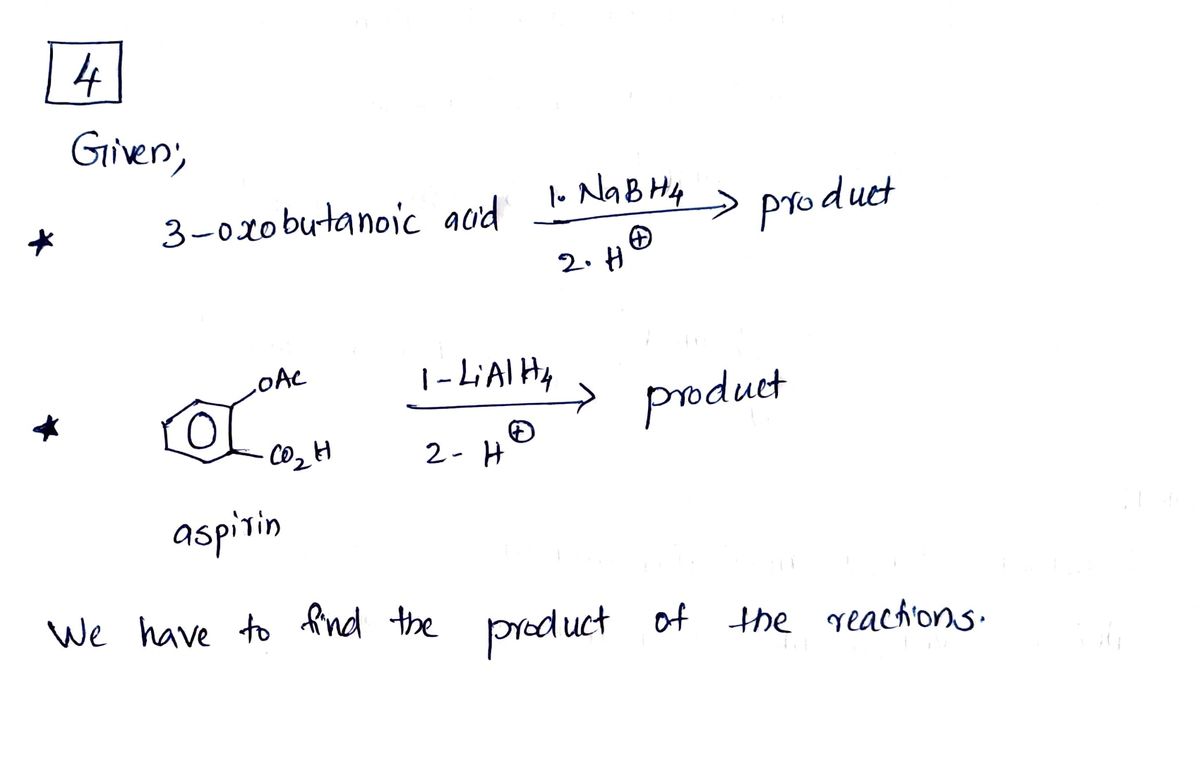 4
Given;
* 3-oxobutanoic acid 1. NaBH4 → product
2. H⊕
OAC 1-LiAlH4 → product
* CO2H 2- H⊕
aspirin
We have to find the product of the reactions.